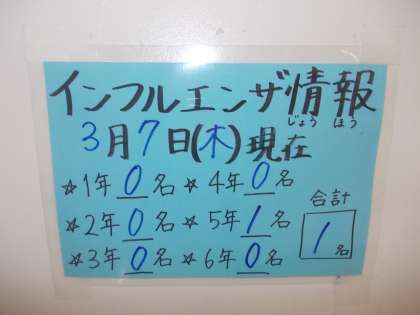 インフルエンザ情報
じょうほう
3月7日(木)現在
☆1年 0名 ☆4年 0名
合計
☆2年 0名 ☆5年 1名
1名
☆3年 0名 ☆6年 0名